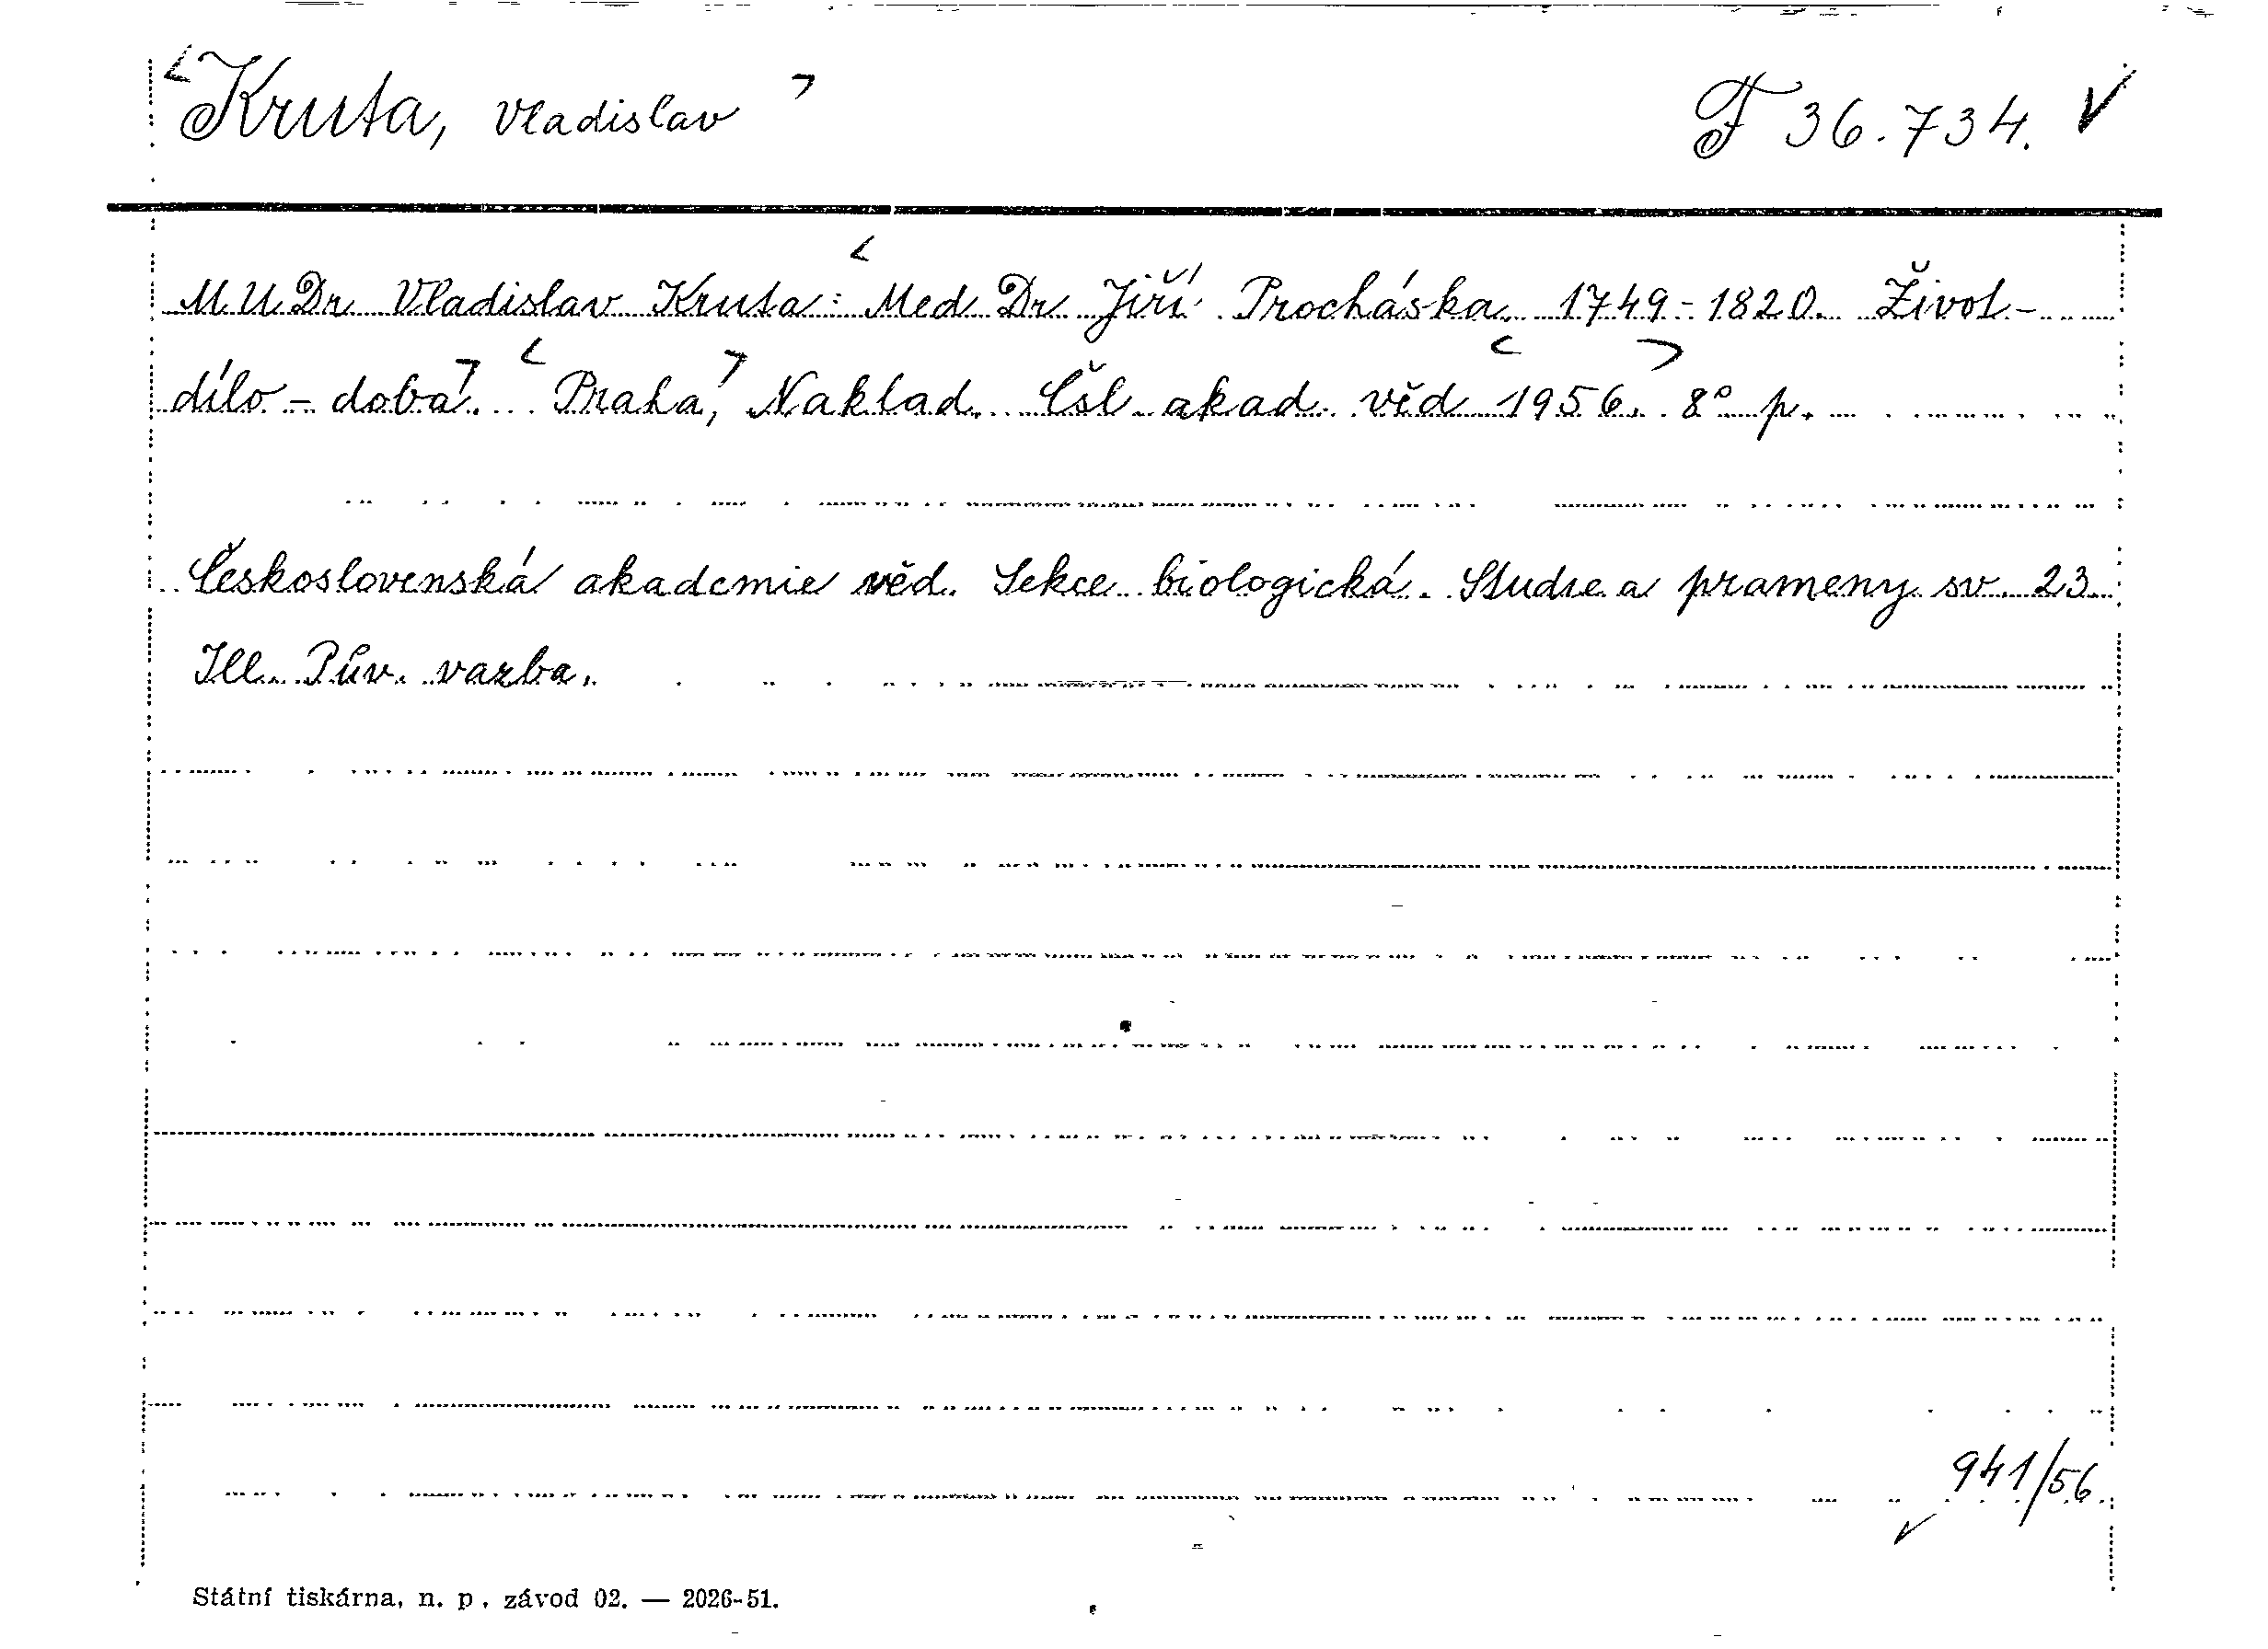 Kruta, Vladislav F 36.734. V
MUDr Vladislav Kruta: Med Dr Jiří Procháska. 1749-1820. Život -
dílo - doba. Praha, Naklad. Čsl. akad. věd 1956. 8° p.
Československá akademie věd. Sekce biologická. Studie a prameny sv. 23
Ill. Pův. vazba.
941/56.
Státní tiskárna, n. p., závod 02. — 2026-51.